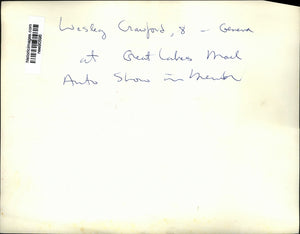 Wesley Crawford, 8 - Geneva
at Great Lakes Mall
Auto Show in Mentor